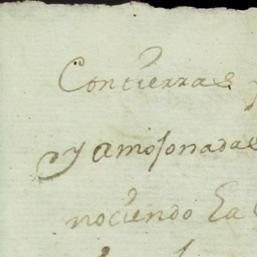 Contierras
y amojonadas
nociendo la